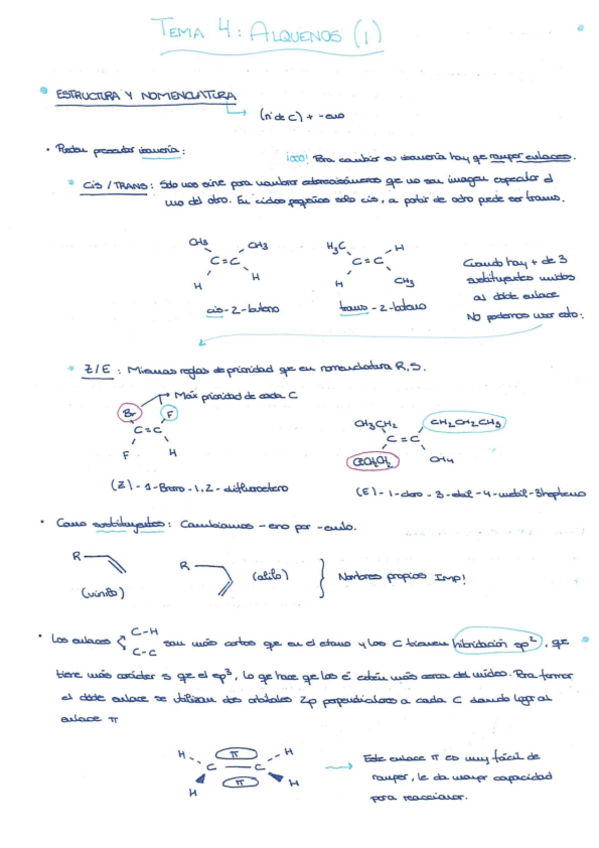 TEMA 4: ALQUENOS (1)
ESTRUCTURA Y NOMENCLATURA
(nº de C) + -eno
• Pueden presentar isomería:
¡OJO! Para cambiar su isomería hay qe romper enlaces.
CIS / TRANS: Solo nos sirve para nombrar estereoisómeros qe no son imagen especular el
uno del otro. En ciclos pequeños solo cis, a partir de ocho puede ser trans.
CH3 CH3 H3C H
C=C C=C
H H H CH3
cis-2-buteno trans-2-buteno
Cuando hay + de 3
sustituyentes unidos
al doble enlace
NO podemos usar esto:
Z/E: Mismas reglas de prioridad qe en nomenclatura R,S.
Máx prioridad de cada C
Br F
C=C
F H
CH3CH2 CH2CH2CH3
C=C
ClCH2CH2
(Z)-1-Bromo-1,2-difluoroeteno
(E)-1-cloro-3-etil-4-metil-3hepteno
• Como sustituyentes: Cambiamos -eno por -enilo.
R
(vinilo)
R
(alilo)
Nombres propios IMP!
• Los enlaces C-H C-C son más cortos que en el etano y los C tienen hibridación sp², qe
tiene más carácter s qe el sp³, lo qe hace qe los é estén más cerca del núcleo. Para formar
el doble enlace se utilizan dos orbitales 2p perpendiculares a cada C dando lugar al
enlace π
H π H
C C
H π H
Este enlace π es muy fácil de
romper, le da mayor capacidad
para reaccionar.